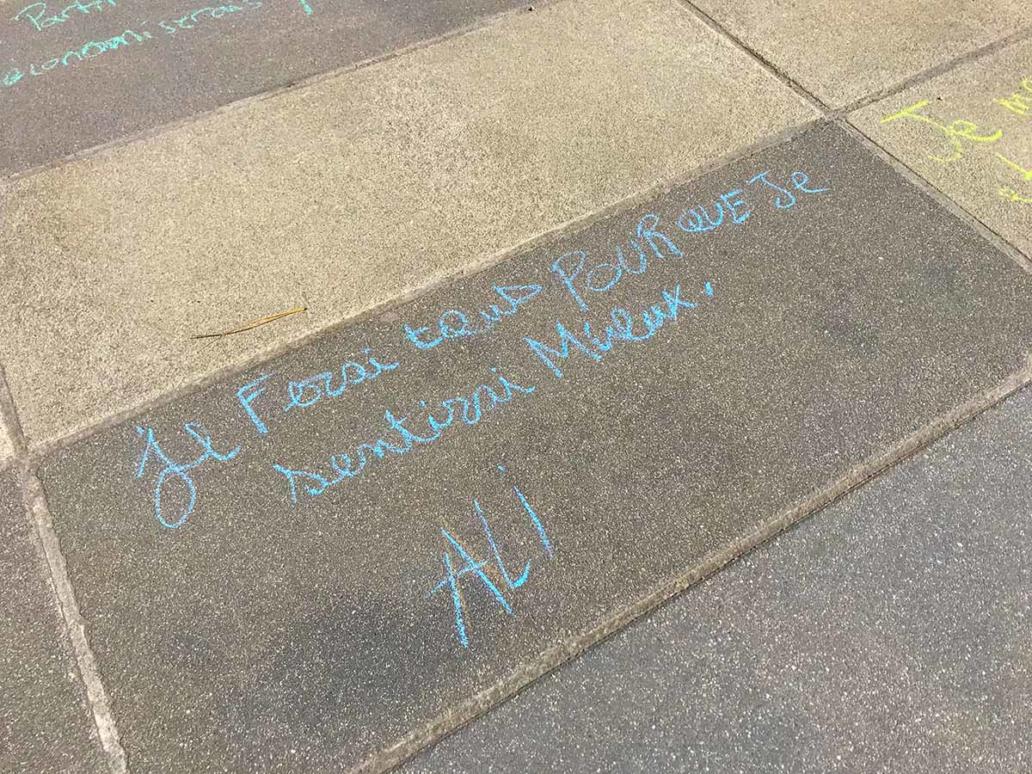 Partir
economiserais
Je me
Je Ferai tout POUR QUE Je
sentirai Mieux.
ALI